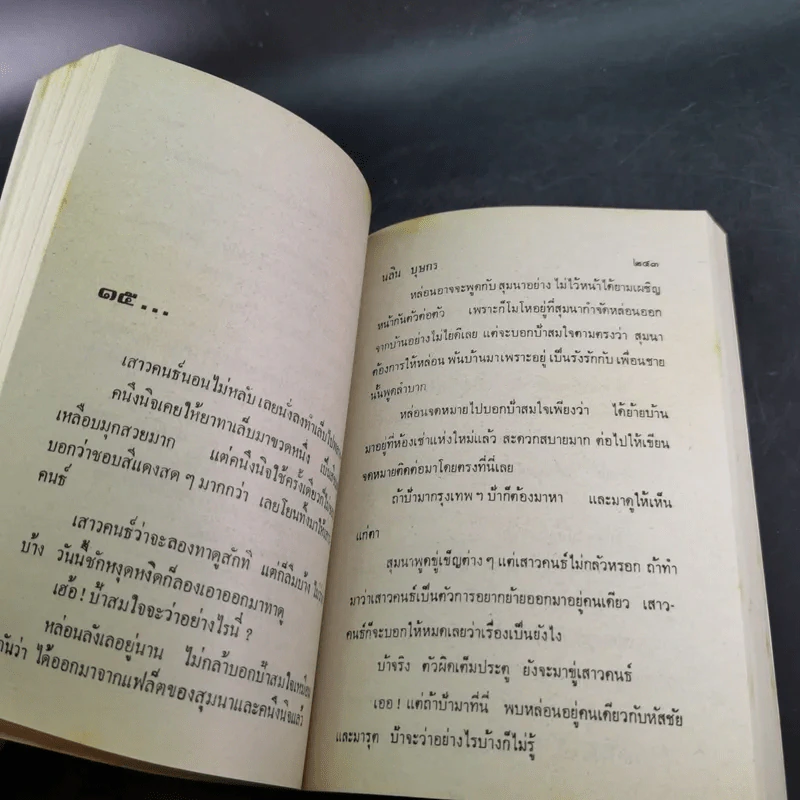 ๑๕...
เสาวคนธ์นอนไม่หลับ เลยนั่งลงทำเล็บ
คนึงนิจเคยให้ยาทาเล็บมาขวดหนึ่ง
เหลือบมุกสวยมาก แต่คนึงนิจใช้ครั้งเดียว
บอกว่าชอบสีแดงสด ๆ มากกว่า เลยโยนทิ้งมาให้
คนธ์
เสาวคนธ์ว่าจะลองทาดูสักที แต่ก็ลืมบ้าง
บ้าง วันนี้ชักหงุดหงิดก็ลองเอาออกมาทาดู
เฮ้อ! ป้าสมใจจะว่าอย่างไรนี่ ?
หล่อนลังเลอยู่นาน ไม่กล้าบอกป้าสมใจ
กันว่า ได้ออกมาจากแฟล็ตของสุมนาและคนึงนิจแล้ว
นลิน บุษกร ๒๔๓
หล่อนอาจจะพูดกับ สุมนาอย่าง ไม่ไว้หน้าได้ยามเผชิญ
หน้ากันตัวต่อตัว เพราะก็โมโหอยู่ที่สุมนากำจัดหล่อนออก
จากบ้านอย่างไม่ไยดีเลย แต่จะบอกป้าสมใจตามตรงว่า สุมนา
ต้องการให้หล่อน พ้นบ้านมาเพราะอยู่ เป็นรังรักกับ เพื่อนชาย
นั้นพูดลำบาก
หล่อนจดหมายไปบอกป้าสมใจเพียงว่า ได้ย้ายบ้าน
มาอยู่ที่ห้องเช่าแห่งใหม่แล้ว สะดวกสบายมาก ต่อไปให้เขียน
จดหมายติดต่อมาโดยตรงที่นี่เลย
ถ้าป้ามากรุงเทพ ฯ ป้าก็ต้องมาหา และมาดูให้เห็น
แก่ตา
สุมนาพูดขู่เข็ญต่าง ๆ แต่เสาวคนธ์ไม่กลัวหรอก ถ้าทำ
มาว่าเสาวคนธ์เป็นตัวการอยากย้ายออกมาอยู่คนเดียว เสาว-
คนธ์ก็จะบอกให้หมดเลยว่าเรื่องเป็นยังไง
บ้าจริง ตัวผิดเต็มประตู ยังจะมาขู่เสาวคนธ์
เออ! แต่ถ้าป้ามาที่นี่ พบหล่อนอยู่คนเดียวกับหัสชัย
และมารุต ป้าจะว่าอย่างไรบ้างก็ไม่รู้